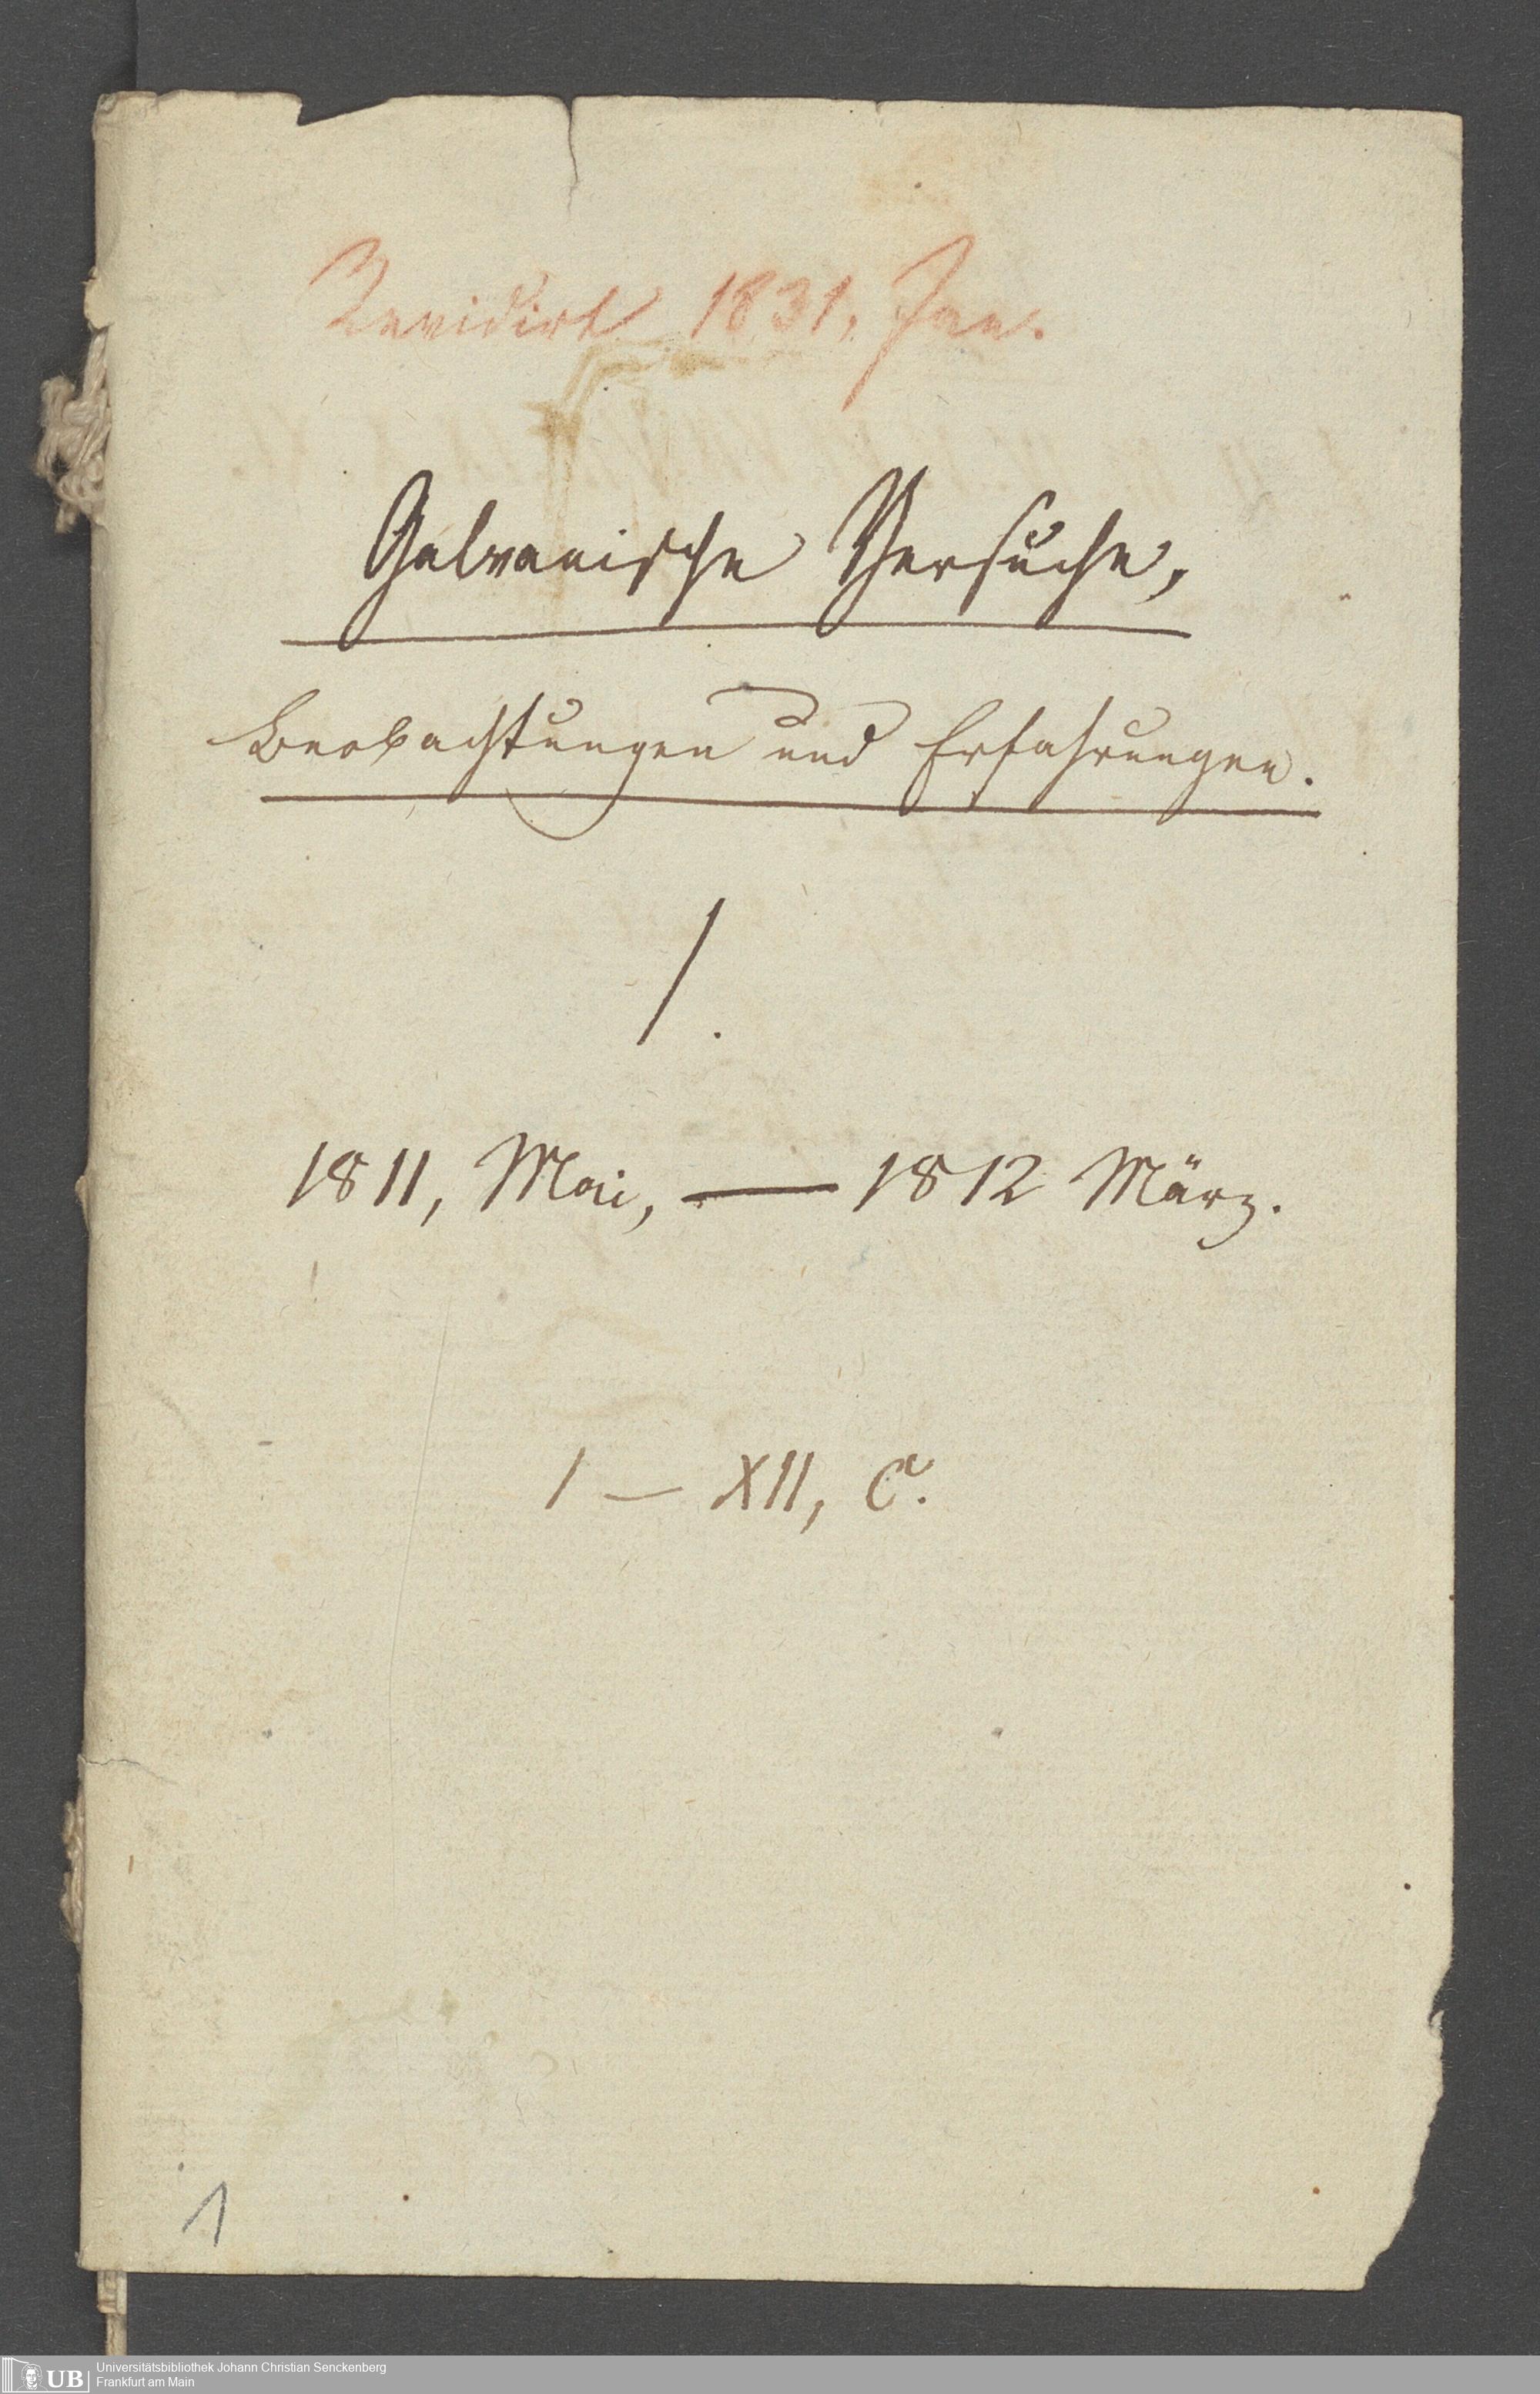 Revidirt 1831, Jan.
Galvanische Versuche,
Beobachtungen und Erfahrungen.
I.
1811, Mai, — 1812 März.
I — XII, C.
1
UB
Universitätsbibliothek Johann Christian Senckenberg
Frankfurt am Main